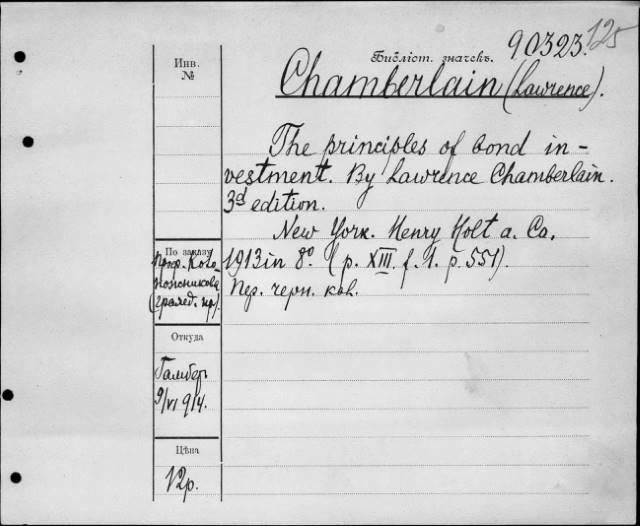 90323. 125
Библіот. значекъ.
Инв.
№
Chamberlain (Lawrence).
The principles of bond in-
vestment. By Lawrence Chamberlain.
3d edition.
New York. Henry Holt a. Co.
1913 in 8º. (p. XIII. f. 1. p. 551).
Пер. черн. кол.
По заказу
Проф. Кого-
ножникова
(гражд. пр).
Откуда
Гамбер
9/VI 914.
Цѣна
12р.